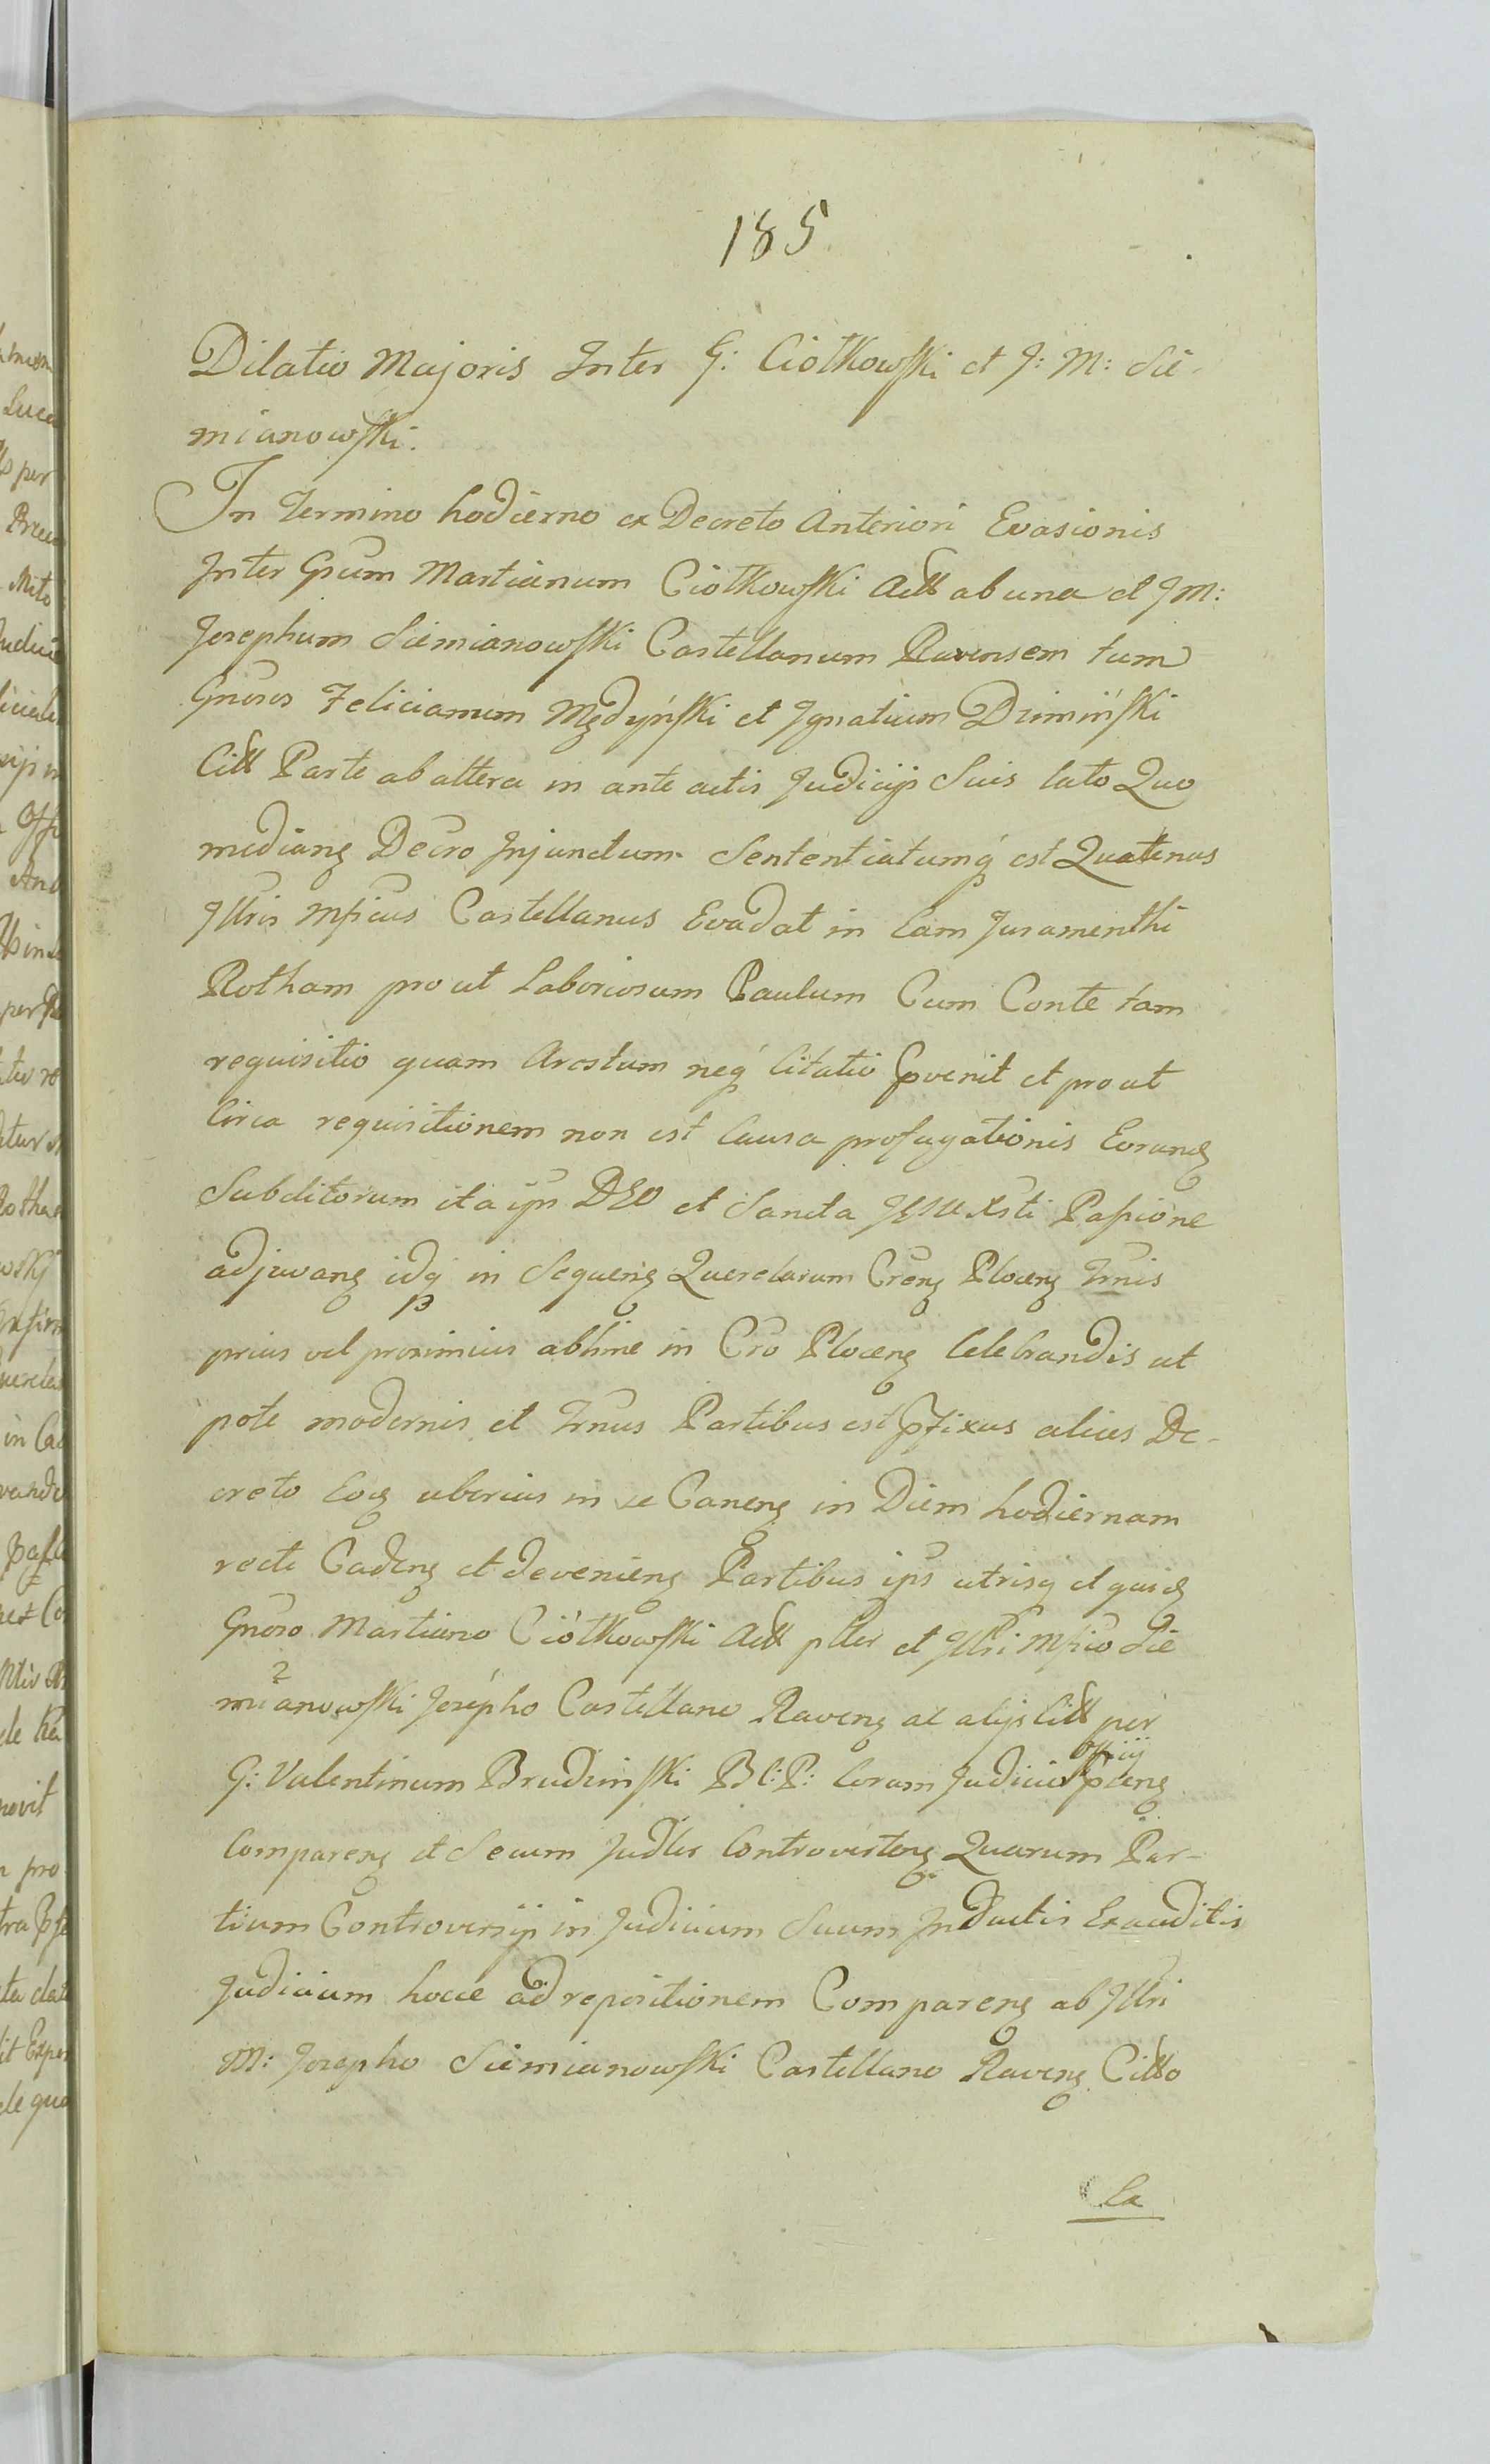 185
Dilatio Majoris Inter G: Ciołkowski et J: M: Sie-
mianowski.
In Termino hodierno ex Decreto Anteriori Evasionis
Inter Gsum Martianum Ciołkowski Actt ab una et J M:
Josephum Siemianowski Castellanum Ravensem tum
Gnosos Felicianum Mędyński et Ignatium Dzimiński
Citt Parte ab altera in ante actis Judicijs Suis lato Quo
median Decro Injunctum Sententiatumq est Quatenus
Jllris Mficus Castellanus Evadat in Eam Juramenthi
Rotham prout Laboriosum Paulum Cum Conte tam
requisitio quam Arestum neq Citatio pvenit et prout
Circa requisitionem non est Causa profugationis Eorund
Subditorum ita ips DEO et Sancta JESU Xsti Passione
adjuvan idq in Sequen Querelarum Cren Plocen Trnis
prius vel proximius abhinc in Cro Plocen Celebrandis ut
pote modernis et Trnus Partibus est pfixus alias De-
creto Eod uberius in se Canen in Diem hodiernam
recte Caden et devenien Partibus ips utrisq et quid
Gnoso Martiano Ciołkowski Actt plter et Jllri Mfico Sie
mianowski Josepho Castellano Raven ac alijs Citt per
G: Valentinum Brudzinski B C: P: Coram Judicio Offiij pten
Comparen et Secum Judltr Controverten Quarum Par-
tium Controversijs in Judicium Suum Inductis Exauditis
Judicium hocce ad repositionem Comparen ab Jllri
M: Josepho Siemianowski Castellano Raven Citto
Ca